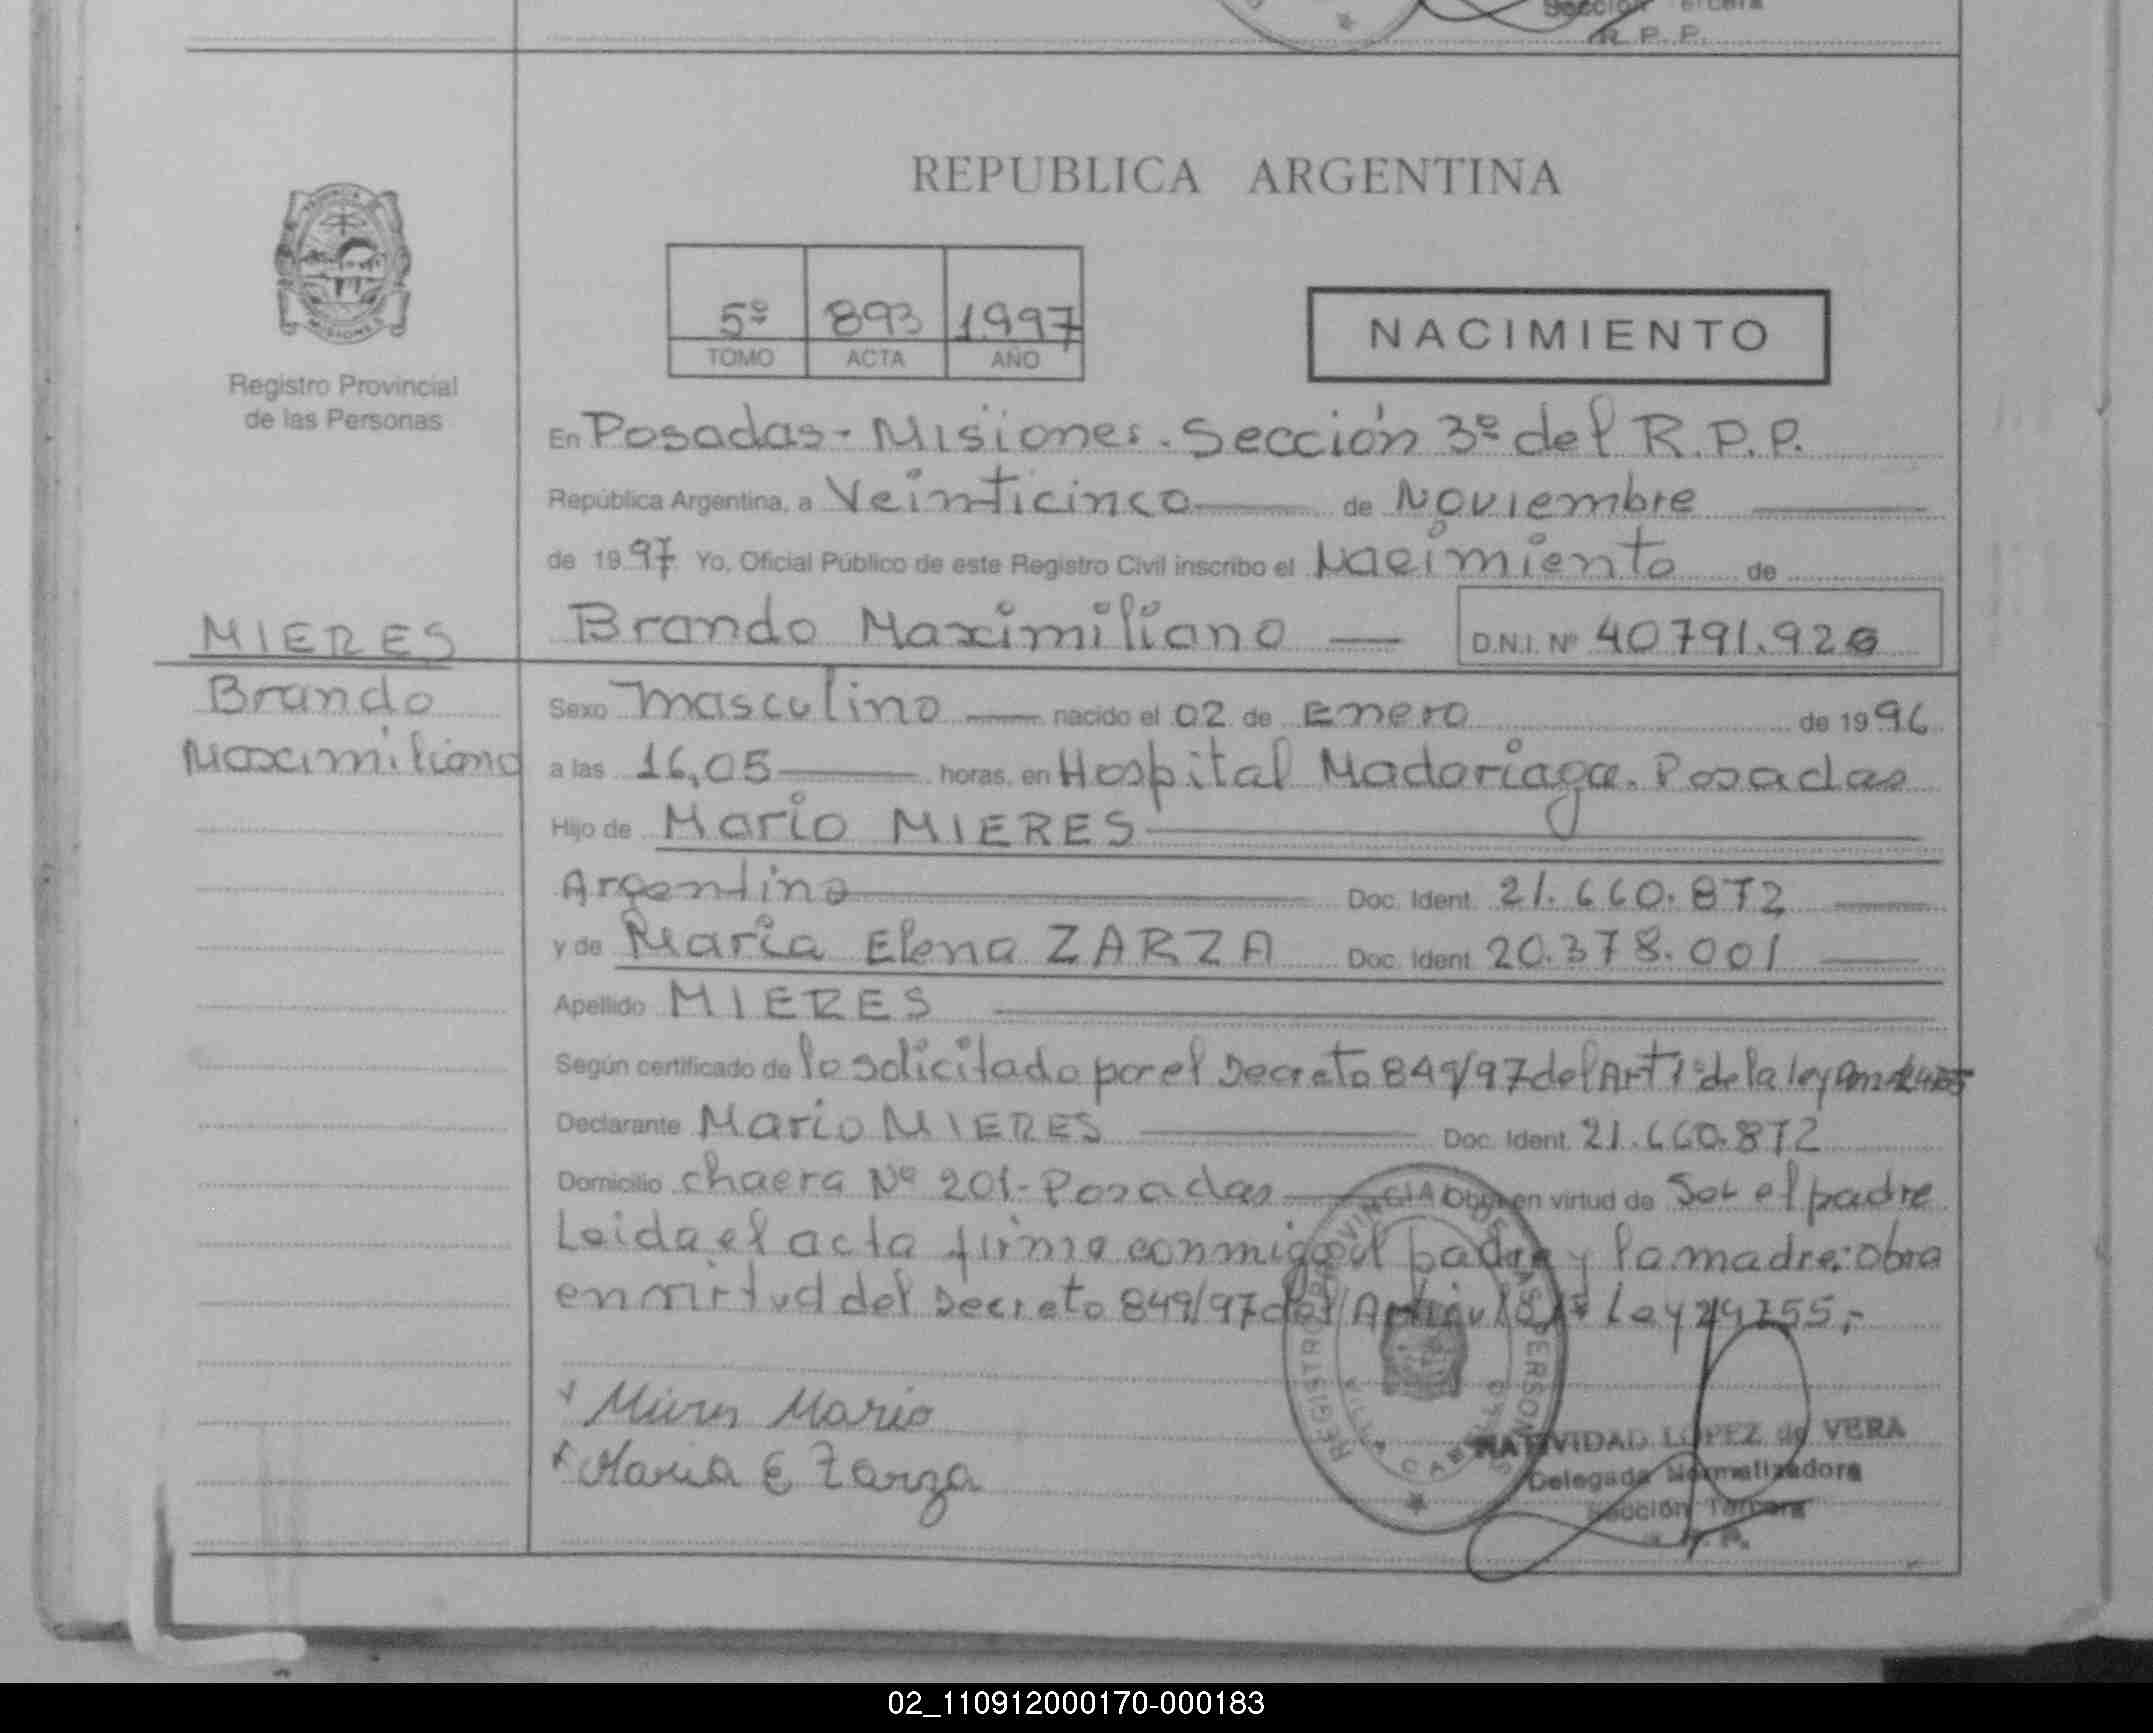 Sección Tercera
R. P. P.
REPUBLICA ARGENTINA
5º 893 1997
TOMO ACTA AÑO
NACIMIENTO
Registro Provincial
de las Personas
En Posadas - Misiones. Sección 3º del R.P.P.
República Argentina, a Veinticinco de Noviembre
de 1997 Yo, Oficial Público de este Registro Civil inscribo el Nacimiento de
MIERES
Brando Maximiliano
Brando Maximiliano D.N.I. Nº 40791.926
Sexo masculino nacido el 02 de Enero de 1996
a las 16,05 horas, en Hospital Madariaga. Posadas
Hijo de Mario MIERES
Argentino Doc. Ident. 21.660.872
y de María Elena ZARZA Doc. Ident. 20.378.001
Apellido MIERES
Según certificado de lo solicitado por el Decreto 849/97 del Art 1º de la ley
Declarante Mario MIERES Doc. Ident. 21.660.872
Domicilio chacra Nº 201 - Posadas Obra en virtud de Ser el padre
Leida el acta firma conmigo el padre y la madre: obra
en virtud del Decreto 849/97 del Artículo 1º Ley 24755,-
Mieres Mario
Maria E Zarza
REGISTRO PROVINCIAL DE LAS PERSONAS
VILLA CABELLO
NATIVIDAD LOPEZ de VERA
Delegada Normalizadora
Sección Tercera
R. P. P.
02_110912000170-000183